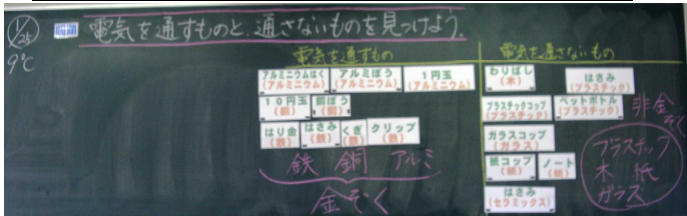 1/25
9℃
問題 電気を通すものと、通さないものを見つけよう。
電気を通すもの
アルミニウムはく (アルミニウム)
アルミぼう (アルミニウム)
1円玉 (アルミニウム)
10円玉 (銅)
銅ぼう (銅)
はり金 (鉄)
はさみ (鉄)
くぎ (鉄)
クリップ (鉄)
鉄 銅 アルミ
金ぞく
電気を通さないもの
わりばし (木)
はさみ (プラスチック)
プラスチックコップ (プラスチック)
ペットボトル (プラスチック)
ガラスコップ (ガラス)
紙コップ (紙)
ノート (紙)
はさみ (セラミックス)
非金ぞく
プラスチック
木 紙
ガラス